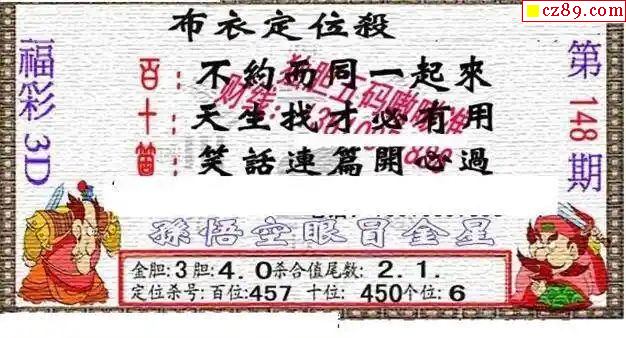 cz89.com
布衣定位殺
福彩3D
第148期
百：不約而同一起來
十：天生找才必有用
箇：笑話連篇開心過
孫悟空眼冒金星
金胆:3胆:4.0杀合值尾数:2.1.
定位杀号:百位:457 十位:450个位:6